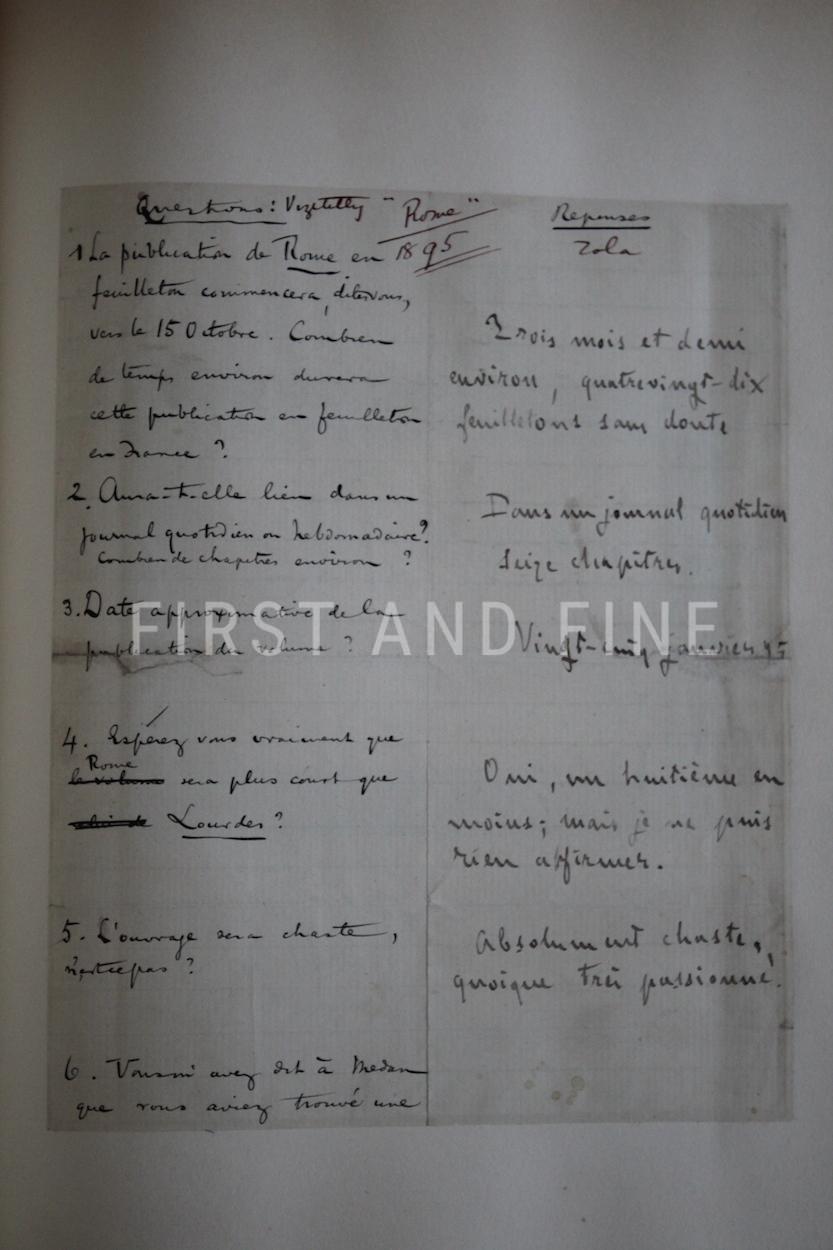 Questions: Vizetelly "Rome"
1895
1 La publication de Rome en
feuilleton commencera, ditesvous,
vers le 15 Octobre. Combien
de temps environ durera
cette publication en feuilleton
en France ?
2. Aura-t-elle lieu dans un
journal quotidien ou hebdomadaire?
Combien de chapitres environ ?
3. Date approximative de la
publication du volume ?
4. Espérez vous vraiment que
Rome
le volume sera plus court que
Lourdes ?
5. L'ouvrage sera chaste,
n'estcepas ?
6. Vous m'avez dit à Medan
que vous aviez trouvé une
Reponses
Zola
Trois mois et demi
environ, quatrevingt-dix
feuilletons sans doute
Dans un journal quotidien
Seize chapitres.
Vingt-cinq janvier 95
Oui, un huitième en
moins; mais je ne puis
rien affirmer.
Absolument chaste,
quoique très passionné.
FIRST AND FINE